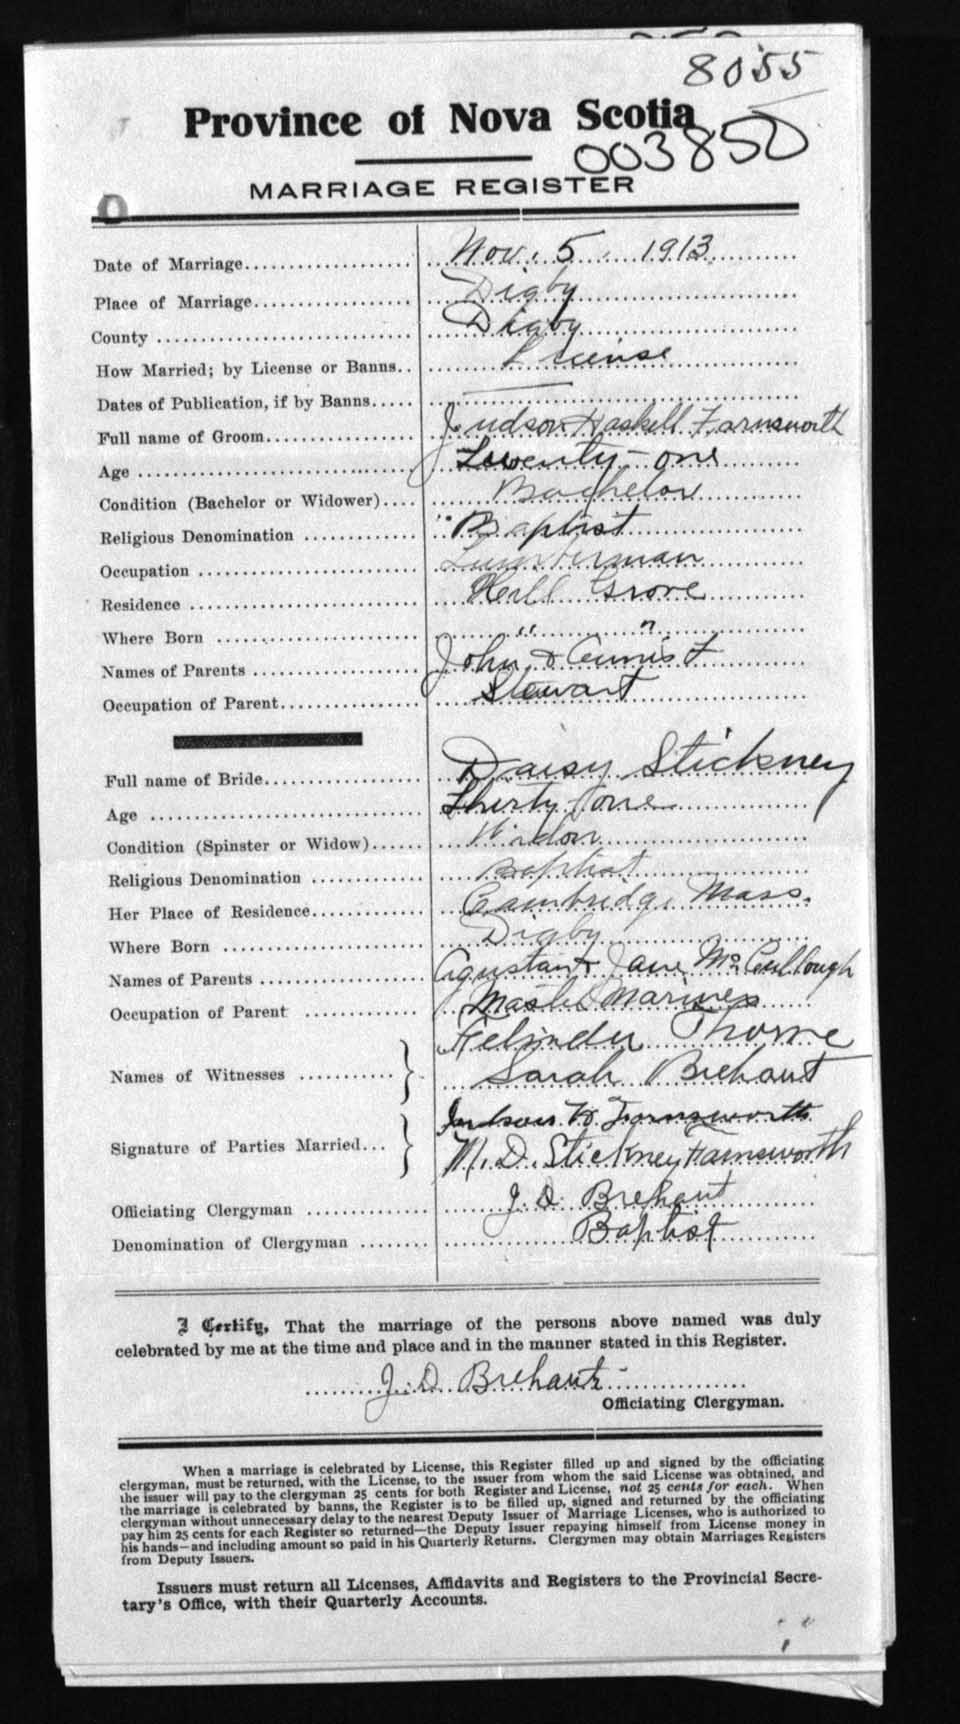 8055
Province of Nova Scotia
003850
MARRIAGE REGISTER
Date of Marriage.................... Nov. 5 1913
Place of Marriage.................. Digby
County .............................. Digby
How Married; by License or Banns.. License
Dates of Publication, if by Banns..... —
Full name of Groom................. Judson Haskell Farnsworth
Age ................................. Twenty-one
Condition (Bachelor or Widower).... Bachelor
Religious Denomination ............. Baptist
Occupation .......................... Lumberman
Residence ........................... Hill Grove
Where Born ......................... " "
Names of Parents ................... John & F
Occupation of Parent................ Stewart
Full name of Bride.................. Daisy Stickney
Age ................................. Thirty-one
Condition (Spinster or Widow)...... Widow
Religious Denomination ............ Baptist
Her Place of Residence............. Cambridge Mass.
Where Born ........................ Digby
Names of Parents .................. Jane McCullough
Occupation of Parent ............. Master Mariner
Thorne
Names of Witnesses ............
Sarah Brehaut
Judson H. Farnsworth
Signature of Parties Married...
M. D. Stickney Farnsworth
Officiating Clergyman ............. J. D. Brehaut
Denomination of Clergyman ........ Baptist
I Certify, That the marriage of the persons above named was duly
celebrated by me at the time and place and in the manner stated in this Register.
J. D. Brehaut
Officiating Clergyman.
When a marriage is celebrated by License, this Register filled up and signed by the officiating
clergyman, must be returned, with the License, to the issuer from whom the said License was obtained, and
the issuer will pay to the clergyman 25 cents for both Register and License, not 25 cents for each. When
the marriage is celebrated by banns, the Register is to be filled up, signed and returned by the officiating
clergyman without unnecessary delay to the nearest Deputy Issuer of Marriage Licenses, who is authorized to
pay him 25 cents for each Register so returned—the Deputy Issuer repaying himself from License money in
his hands—and including amount so paid in his Quarterly Returns. Clergymen may obtain Marriages Registers
from Deputy Issuers.
Issuers must return all Licenses, Affidavits and Registers to the Provincial Secre-
tary's Office, with their Quarterly Accounts.